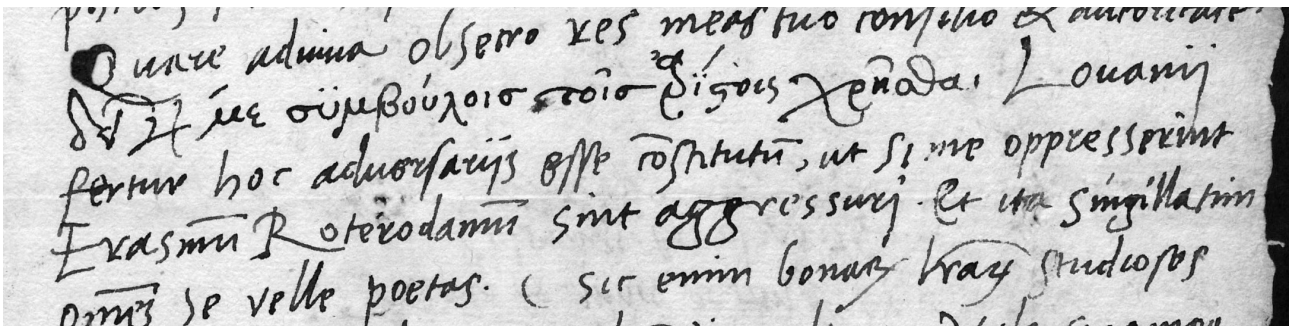 Quare adiuua obsecro res meas tuo consilio & autoritate.
δεῖ με σϋμβούλοισ τοῖσ χρῆσθαι. Lovanij
fertur hoc aduersarijs esse cōstitutū, ut si me oppresserint
Erasmū Roterodamū sint aggressuri. Et ita singillatim
omēs se velle poetas. ( Sic enim bonaꝝ lr̄aꝝ studiosos